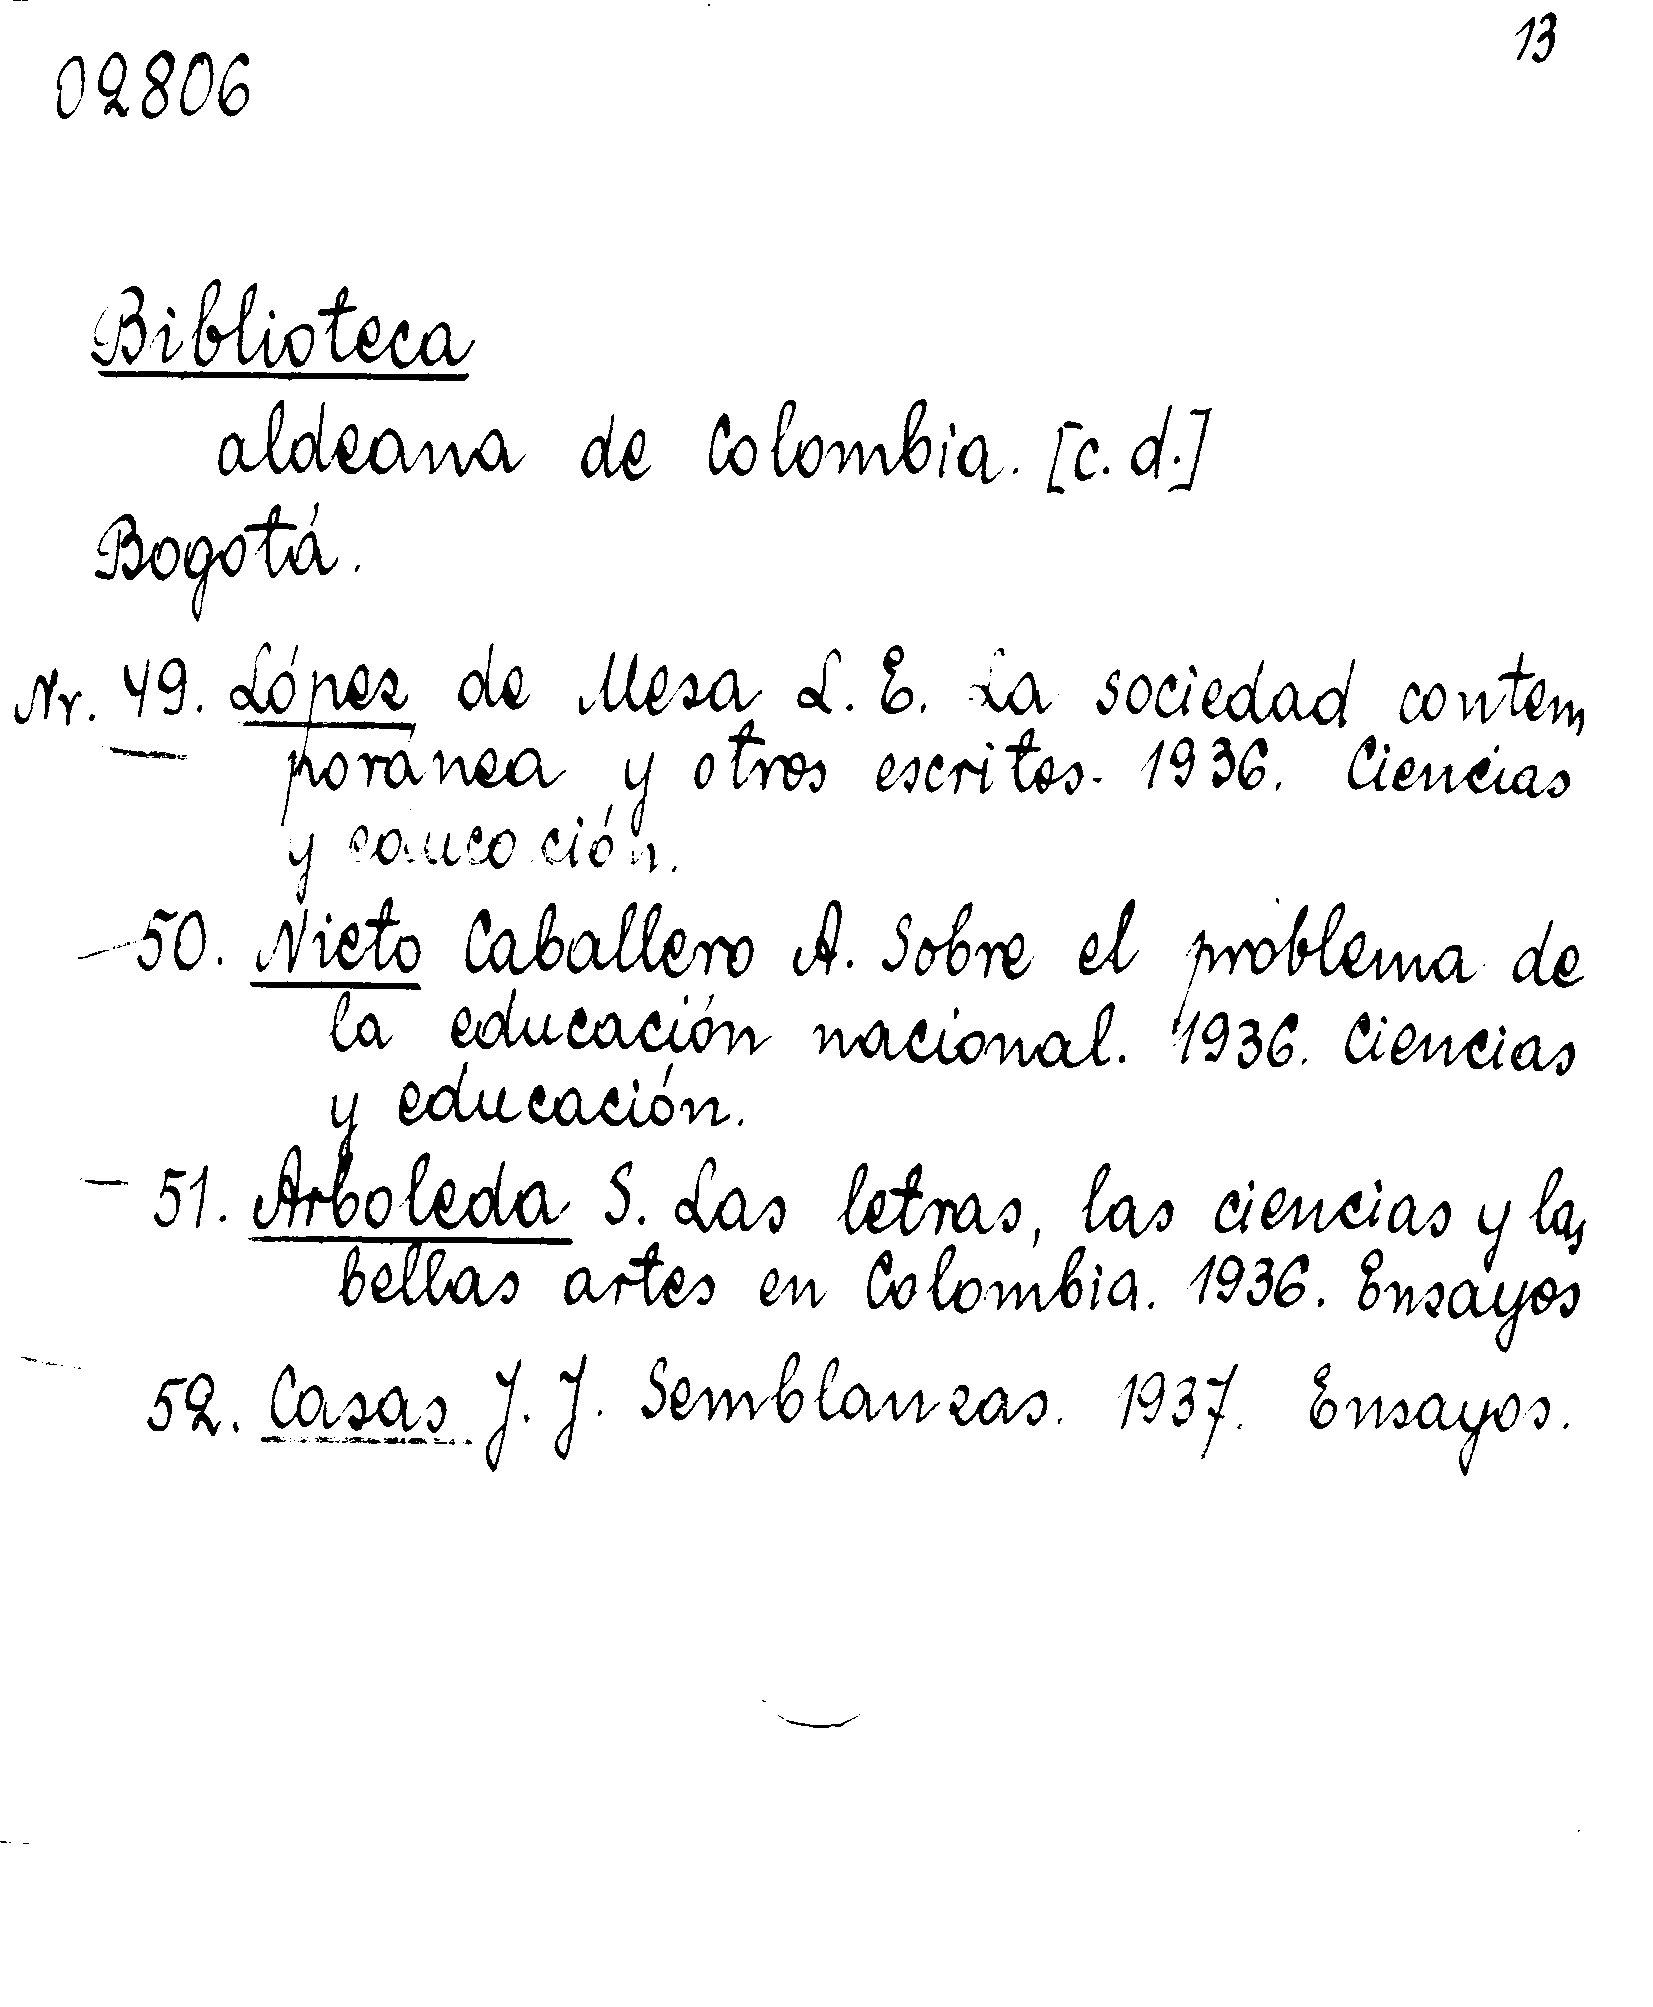 13
02806
Biblioteca
aldeana de Colombia. [c.d.]
Bogotá.
Nr. 49. López de Mesa L. E. La sociedad contem
poránea y otros escritos. 1936. Ciencias
y educación.
50. Nieto Caballero A. Sobre el problema de
la educación nacional. 1936. Ciencias
y educación.
51. Arboleda S. Las letras, las ciencias y las
bellas artes en Colombia. 1936. Ensayos
52. Casas J. J. Semblanzas. 1937. Ensayos.